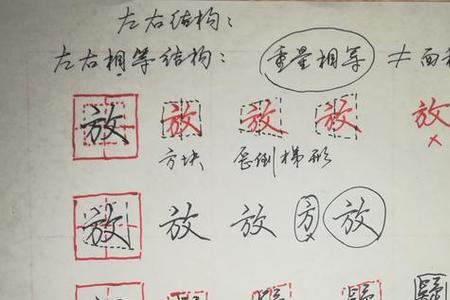 左右结构：
左右相等结构： 重量相等 ≠ 面积
放 放 放 放 放 ×
方块 歪倒梯形
放 放 放 方 放